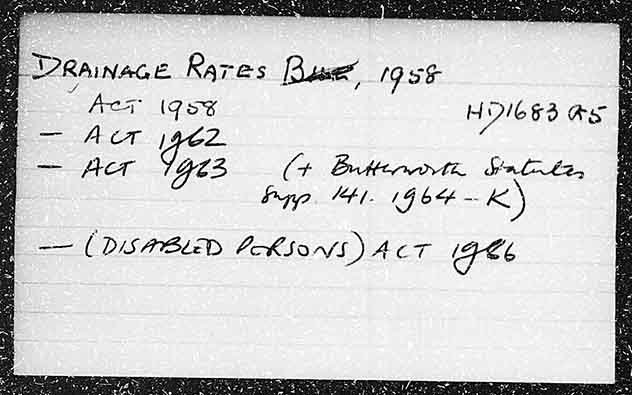 DRAINAGE RATES Bill, 1958
ACT 1958 HD1683 G5
— ACT 1962
— ACT 1963 (+ Butterworth Statutes
Supp. 141. 1964 - K)
— (DISABLED PERSONS) ACT 1986